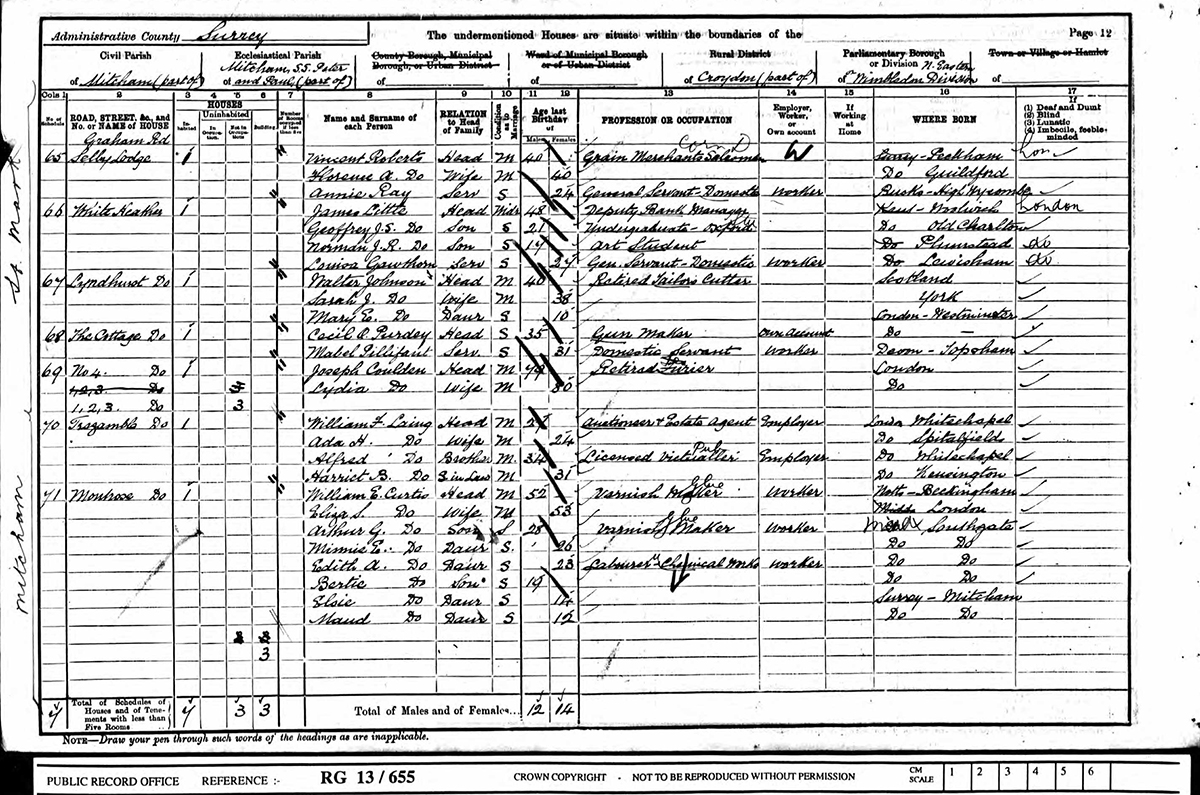 Administrative County Surrey
The undermentioned Houses are situate within the boundaries of the
Page 12
Civil Parish
of Mitcham (part of)
Ecclesiastical Parish
Mitcham S.S. Peter
of and Paul (part of)
County Borough, Municipal
Borough, or Urban District
of
Ward of Municipal Borough
or of Urban District
of
Rural District
of Croydon (part of)
Parliamentary Borough
or Division N. Eastern
of Wimbledon Division
Town or Village or Hamlet
of
Cols 1 2 3 4 5 6 7 8 9 10 11 12 13 14 15 16 17
No. of Schedule
ROAD, STREET, &c., and No. or NAME of HOUSE
HOUSES
Inhabited
Uninhabited
In Occupation
Not in Occupation
Building
Number of Rooms occupied if less than five
Name and Surname of each Person
RELATION to Head of Family
Condition as to Marriage
Age last Birthday of
Males Females
PROFESSION OR OCCUPATION
Employer, Worker, or Own account
If Working at Home
WHERE BORN
If
(1) Deaf and Dumb
(2) Blind
(3) Lunatic
(4) Imbecile, feeble-minded
Graham Rd
65 Selly Lodge 1 Vincent Roberts Head M 40 Grain Merchants Salesman Corn W Surrey - Peckham Lon
Florence A. Do Wife M 40 Do Guildford
Annie Ray Serv S 24 General Servant - Domestic Worker Bucks - High Wycombe
66 White Heather 1 James Little Head Widr 48 Deputy Bank Manager Kent - Woolwich London
Geoffrey J.S. Do Son S 21 Undergraduate - Oxford Do Old Charlton
Norman J.R. Do Son S 19 Art Student Do Plumstead Do
Louisa Gawthorn Serv S 27 Gen. Servant - Domestic Worker Do Lewisham Do
67 Lyndhurst Do 1 Walter Johnson Head M 40 Retired Tailors Cutter Scotland
Sarah J. Do Wife M 38 York
Mary E. Do Daur S 10 London - Westminster
68 The Cottage Do 1 Cecil Purdey Head S 35 Gun Maker Own Account Do -
Mabel Pillifant Serv S 31 Domestic Servant Worker Devon - Topsham
69 No 4. Do 1 Joseph Coulden Head M 79 Retired Furier London
1, 2, 3. Do Lydia Do Wife M 80 Do
1, 2, 3. Do 3
70 Do 1 William F. Laing Head M 27 Auctioneer & Estate Agent Employer London Whitechapel
Ada H. Do Wife M 24 Do Spitalfield
Alfred Do Brother M 34 Licensed Victualler Pub Employer Do Whitechapel
Harriet B. Do S. in Law M 31 Do Kensington
71 Montrose Do 1 William E. Curtis Head M 52 Varnish Maker Worker Notts - Beckingham
Eliza S. Do Wife M 53 London
Arthur G. Do Son S 28 Varnish Maker Worker Southgate
Minnie E. Do Daur S. 26 Do Do
Edith A. Do Daur S 23 Do Do
Bertie Do Son S 19 Labourer Chemical Works Worker Do Do
Elsie Do Daur S 14 Surrey - Mitcham
Maud Do Daur S 12 Do Do
3
7 Total of Schedules of Houses and of Tenements with less than Five Rooms 7 3 3
Total of Males and of Females... 12 14
NOTE—Draw your pen through such words of the headings as are inapplicable.
St. Mark
Mitcham
PUBLIC RECORD OFFICE REFERENCE :- RG 13 / 655 CROWN COPYRIGHT - NOT TO BE REPRODUCED WITHOUT PERMISSION CM SCALE 1 2 3 4 5 6